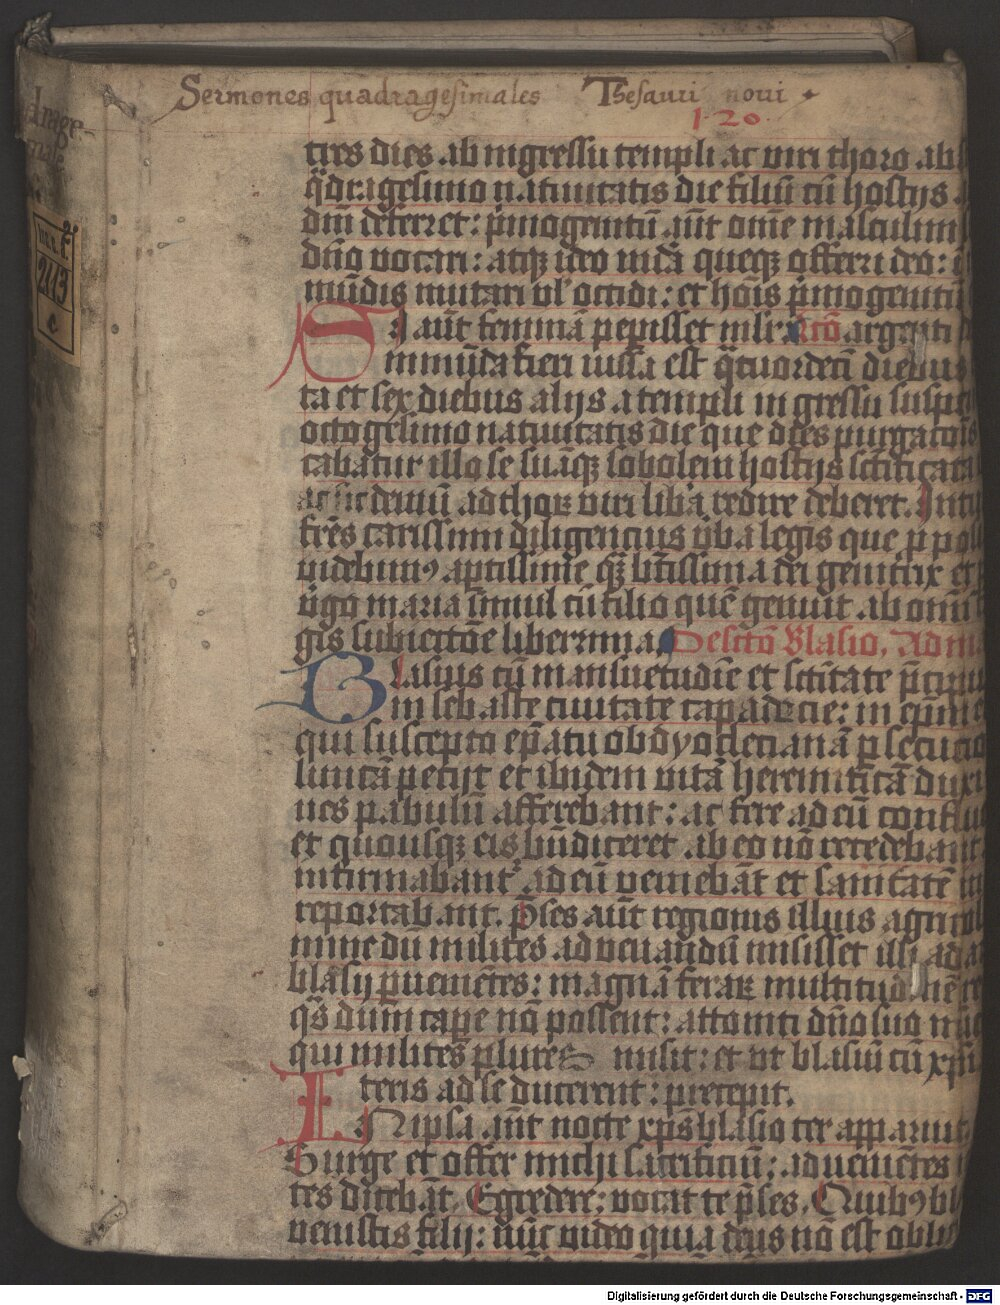 Sermones quadragesimales Thesauri noui
1·20
tres dies ab ingressu templi ac viri thoro ab
q̄dragesimo natiuitatis die filiū cū hostijs
dn̄i deferret: p̄mogenitū aūt om̄e masculinū
dn̄o vocari: atqꝫ ideo mūda queqꝫ offerri deo: ī
mūdis mutari vl' occidi: et hoīs p̄mogenitū
Si aūt feminā peperisset argenti
inmūda fieri iussa est q̄tuordecī diebus
ta et sex diebus alijs a templi ingressu suspē
octogesimo natiuitatis die que dies purgacōis
cabatur illo se suāqꝫ sobolem hostijs
ac sic demū ad thoꝝ viri lib'a redire deberet. Intu
fr̄es carissimi diligencius v̄ba legis que p̄po
videbimꝰ aptissime q̄ꝫ bt̄issima dei genitrix et
v̄go maria simul cū filio quē genuit ab omī
gis subiectōe liberrima De sctō Blasio. Ad m
Blasius cū mansuetudīe et sctītate p̄cipu
in sebaste ciuitate capadocie: in ep̄m e
qui suscepto ep̄atu ob dyocleciananā p̄secucio
luncā pecijt et ibidem vitā heremiticā duxi
ues pabulū afferebant: ac fere ad eū conflu
et quousqꝫ eis bn̄diceret ab eo nō recedebant
infirmabant' ad eū veniebāt et sanitatē in
reportabant. P̄ses aūt regionis illius
mine dū milites ad venandū misisset illi ad a
blasij p̄uenietes: magnā feraꝝ multitudinē
q̄s dum cap̄e nō possent: attoniti dn̄o suo nūc
qui milites plures misit: et vt blasiū cū xp̄ī
ceteris ad se ducerent: precepit.
IN ipsa aūt nocte xp̄s blasio ter apparuit
Surge et offer michi sacrificiū: aduenietes
tes dicebāt. Egredere: vocat te p̄ses. Quibꝰ bl
venistis filij: nūc video quia deus nō est obli
2113
c
Digitalisierung gefördert durch die Deutsche Forschungsgemeinschaft - DFG